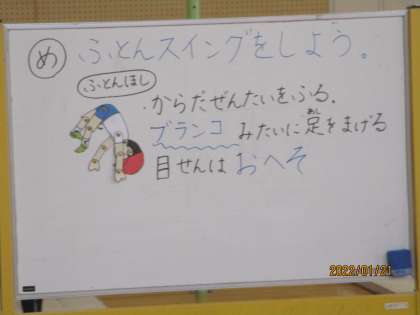 め ふとんスイングをしよう。
ふとんほし
・からだぜんたいをふる。
ブランコみたいに足をまげる
あし
目せんはおへそ
2022/01/21